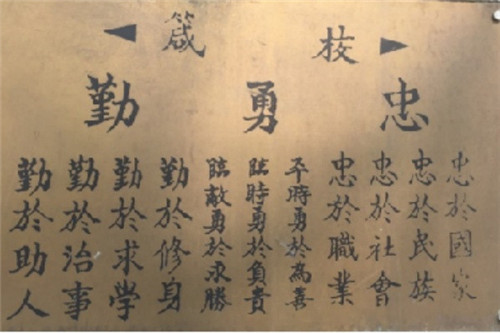 校箴
忠勇勤
忠於國家
忠於民族
忠於社會
忠於職業
平時勇於為善
臨時勇於負責
臨敵勇於求勝
勤於修身
勤於求学
勤於治事
勤於助人